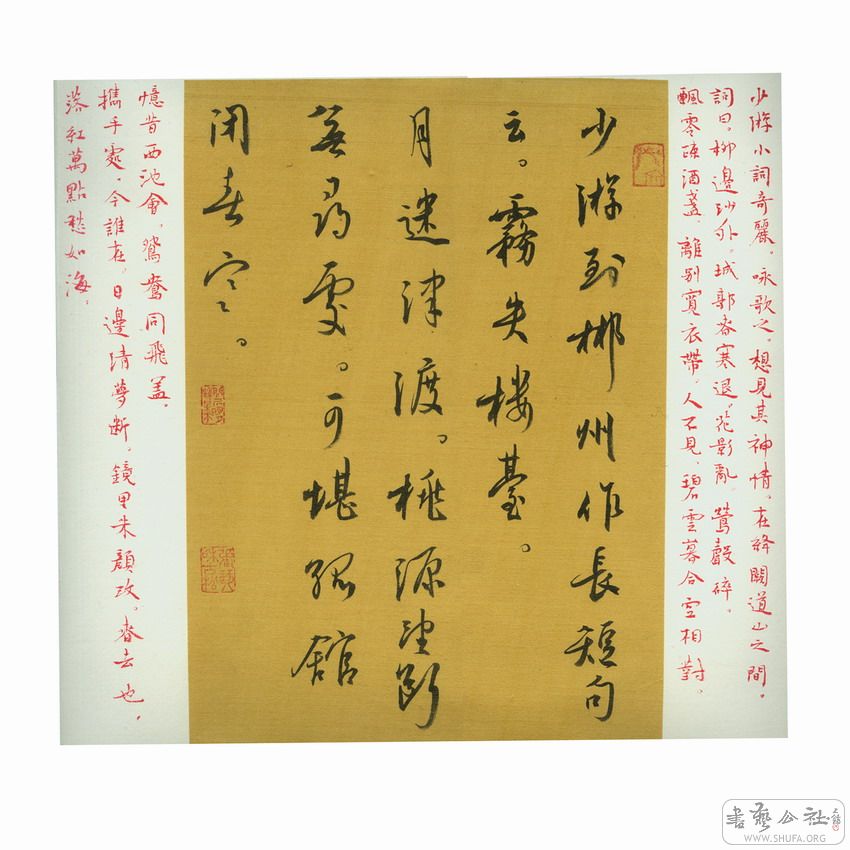 少游小詞奇麗。咏歌之。想見其神情。在絳闕道山之間。
詞曰。柳邊沙外。城郭春寒退。花影亂。鶯聲碎。
飄零疎酒盞。離別寬衣帶。人不見。碧雲暮合空相對。
少游到郴州作長短句
云。霧失楼臺。
月迷津渡。桃源望斷
無尋處。可堪孤館
閉春寒。
憶昔西池會。鴛鴦同飛盖。
攜手處。今誰在。日邊清夢斷。鏡里朱顏改。春去也。
落紅萬點愁如海。
書藝公社
WWW.SHUFA.ORG